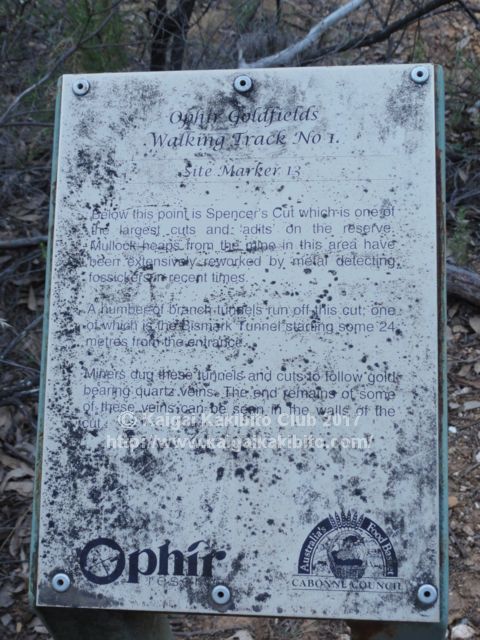 Ophir Goldfields
Walking Track No 1.
Site Marker 13
Below this point is Spencer's Cut which is one of
the largest cuts and 'adits' on the reserve.
Mullock heaps from the mine in this area have
been extensively reworked by metal detecting
fossickers in recent times.
A number of branch tunnels run off this cut; one
of which is the Bismark Tunnel starting some 24
metres from the entrance.
Miners dug these tunnels and cuts to follow gold
bearing quartz veins. The end remains of some
of these veins can be seen in the walls of the
cut.
© Kaigai Kakibito Club 2017
http://www.kaigaikakibito.com/
Ophir
Australia's Food Basket
CABONNE COUNCIL